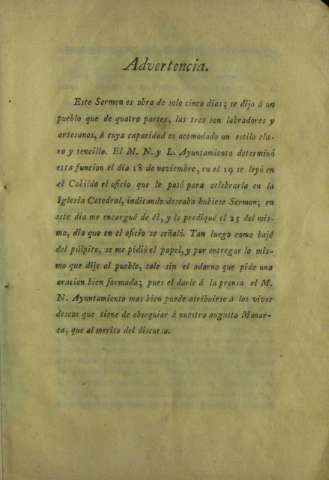 Advertencia.
Este Sermon es obra de solo cinco dias; se dijo á un
pueblo que de quatro partes, las tres son labradores y
artesanos, á cuya capacidad es acomodado un estilo cla-
ro y sencillo. El M. N. y L. Ayuntamiento determinó
esta funcion el dia 18 de noviembre, en el 19 se leyó en
el Cabildo el oficio que le pasó para celebrarla en la
Iglesia Catedral, indicando deseaba hubiese Sermon; en
este dia me encargué de él, y lo prediqué el 25 del mis-
mo, dia que en el oficio se señaló. Tan luego como bajé
del púlpito, se me pidió el papel, y por entregar lo mis-
mo que dije al pueblo, sale sin el adorno que pide una
oracion bien formada; pues el darle á la prensa el M.
N. Ayuntamiento mas bien puede atribuirse á los vivos
deseos que tiene de obsequiar á nuestro augusto Monar-
ca, que al merito del discurso.